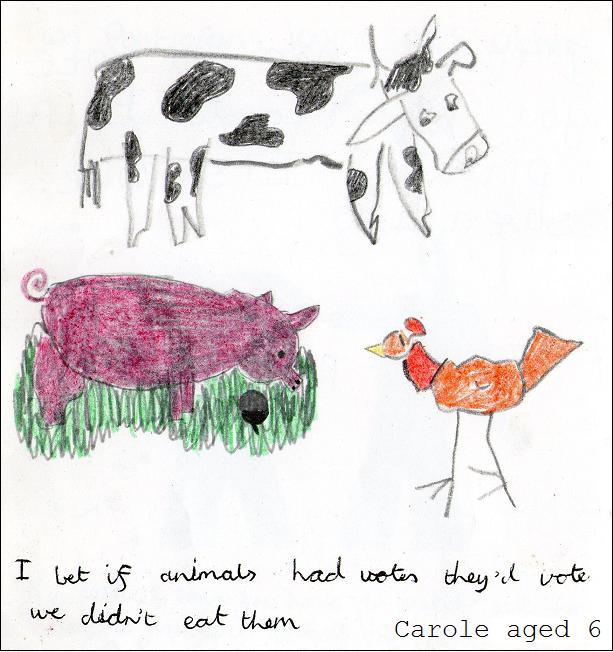 I bet if animals had votes they'd vote
we didn't eat them
Carole aged 6